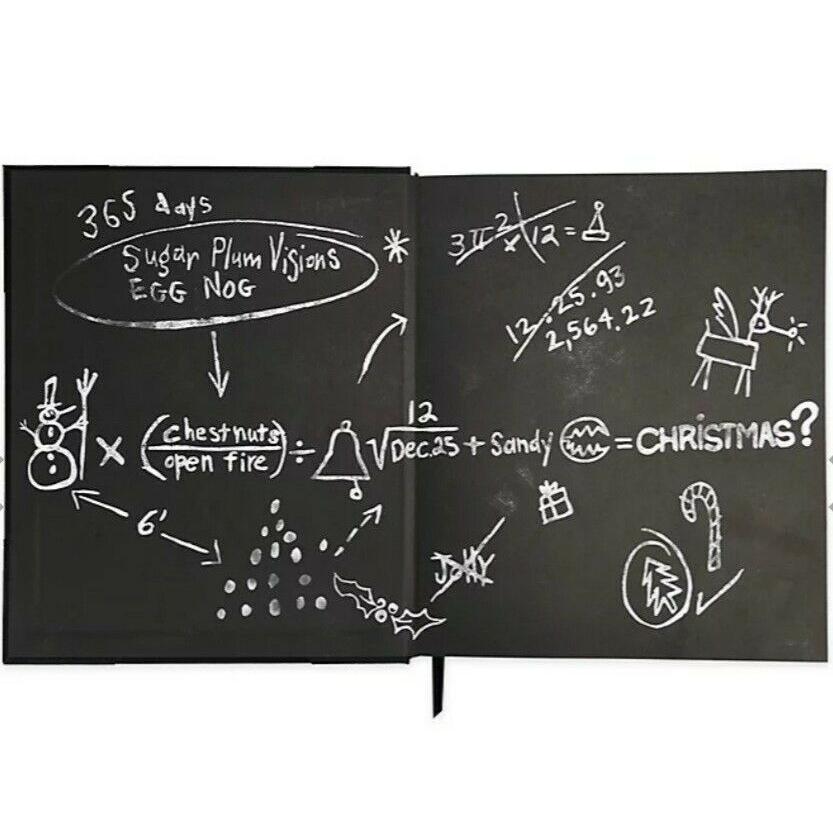 365 days
Sugar Plum Visions
EGG NOG
*
3π² x 12 =
12.25.93
2,564.22
x (chestnuts / open fire) ÷ 12 √Dec.25 + Sandy = CHRISTMAS?
6'
JOLLY